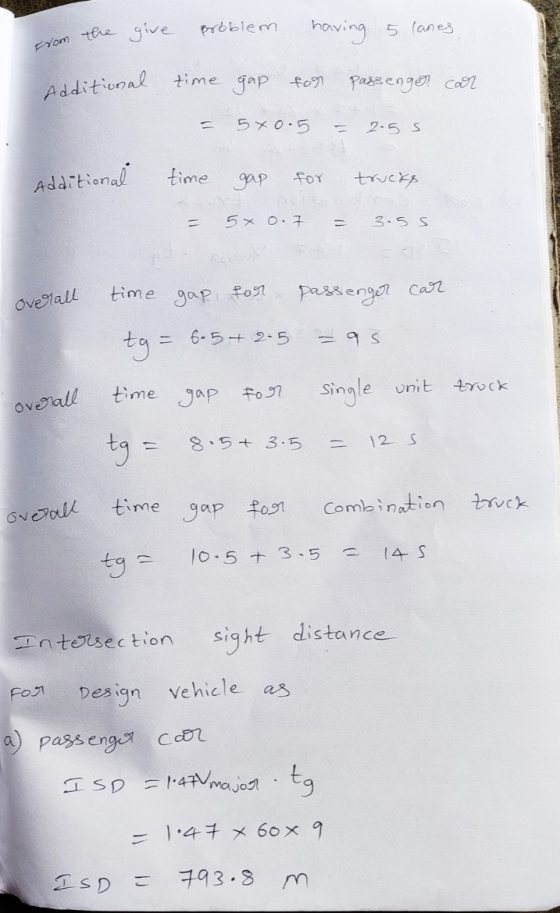 From the give problem having 5 lanes
Additional time gap for passenger car
= 5×0.5 = 2.5 s
Additional time gap for trucks
= 5×0.7 = 3.5 s
overall time gap for passenger car
tg = 6.5+2.5 = 9 s
overall time gap for single unit truck
tg = 8.5+3.5 = 12 s
overall time gap for combination truck
tg = 10.5+3.5 = 14 s
Intersection sight distance
For Design vehicle as
a) passenger car
ISD = 1.47Vmajor . tg
= 1.47 × 60 × 9
ISD = 793.8 m